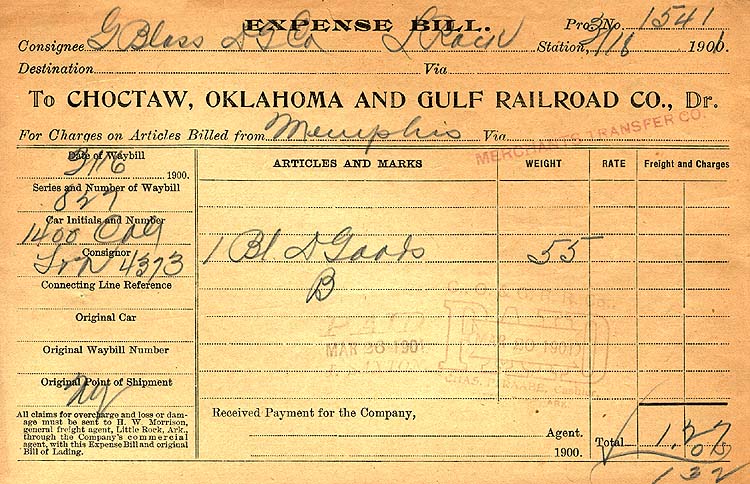 EXPENSE BILL.
Pro. No. 1541
Consignee G Blass D G Co L Rock Station, 3/16 1901
Destination Via
To CHOCTAW, OKLAHOMA AND GULF RAILROAD CO., Dr.
For Charges on Articles Billed from Memphis Via
MERCHANTS TRANSFER CO.
Date of Waybill ARTICLES AND MARKS WEIGHT RATE Freight and Charges
3/16 1900.
Series and Number of Waybill
827
Car Initials and Number
1400 COG
1 Bl D Goods 55
Consignor
4373
B
Connecting Line Reference
C. O. & G. R. R. Co.
Original Car
PAID PAID
MAR 30 1901 MAR 30 1901
Original Waybill Number
CHAS. P. RAABE, Cashier
ARK.
Original Point of Shipment
NY
All claims for overcharge and loss or dam-
age must be sent to H. W. Morrison,
general freight agent, Little Rock, Ark.,
through the Company's commercial
agent, with this Expense Bill and original
Bill of Lading.
Received Payment for the Company,
Agent.
1900.
Total 1.27
05
132